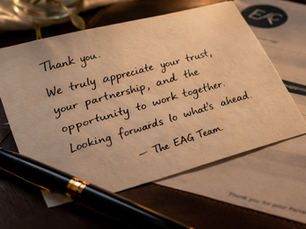 Thank you.
We truly appreciate your trust,
your partnership, and the
opportunity to work together.
Looking forwards lo what's ahead
– The EAG Team
EAG
Thank you for your